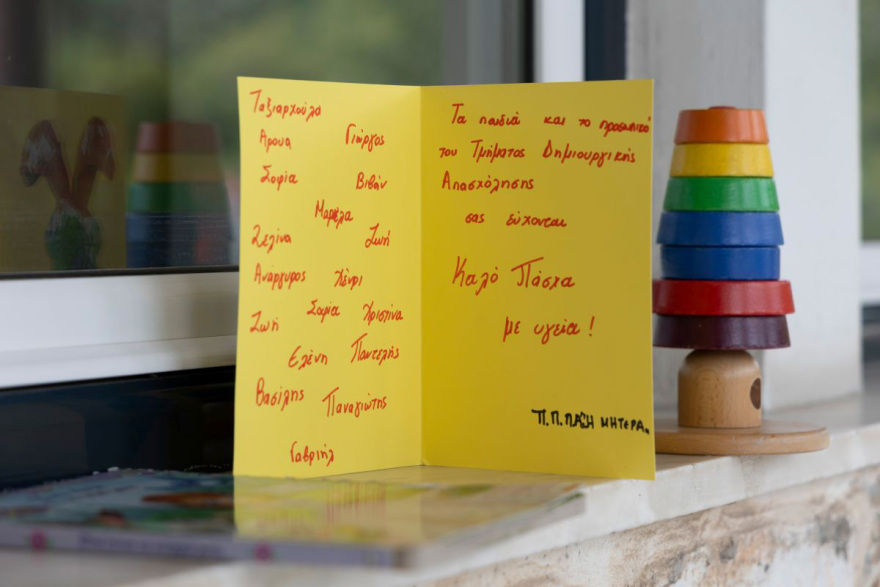 Ταξιαρχούλα
Αρουα Γιώργος
Σοφία Βιβάν
Μαρέλα
Σελίνα Ζωή
Ανάργυρος Χένρι
Σοφία Χριστίνα
Ζωή
Ελένη Παντελής
Βασίλης
Παναγιώτης
Γαβριήλ
Τα παιδιά και το προσωπικό
του Τμήματος Δημιουργικής
Απασχόλησης
σας εύχονται
Καλό Πάσχα
με υγεία!
Π.Π. ΠΑΣΗ ΜΗΤΕΡΑ.